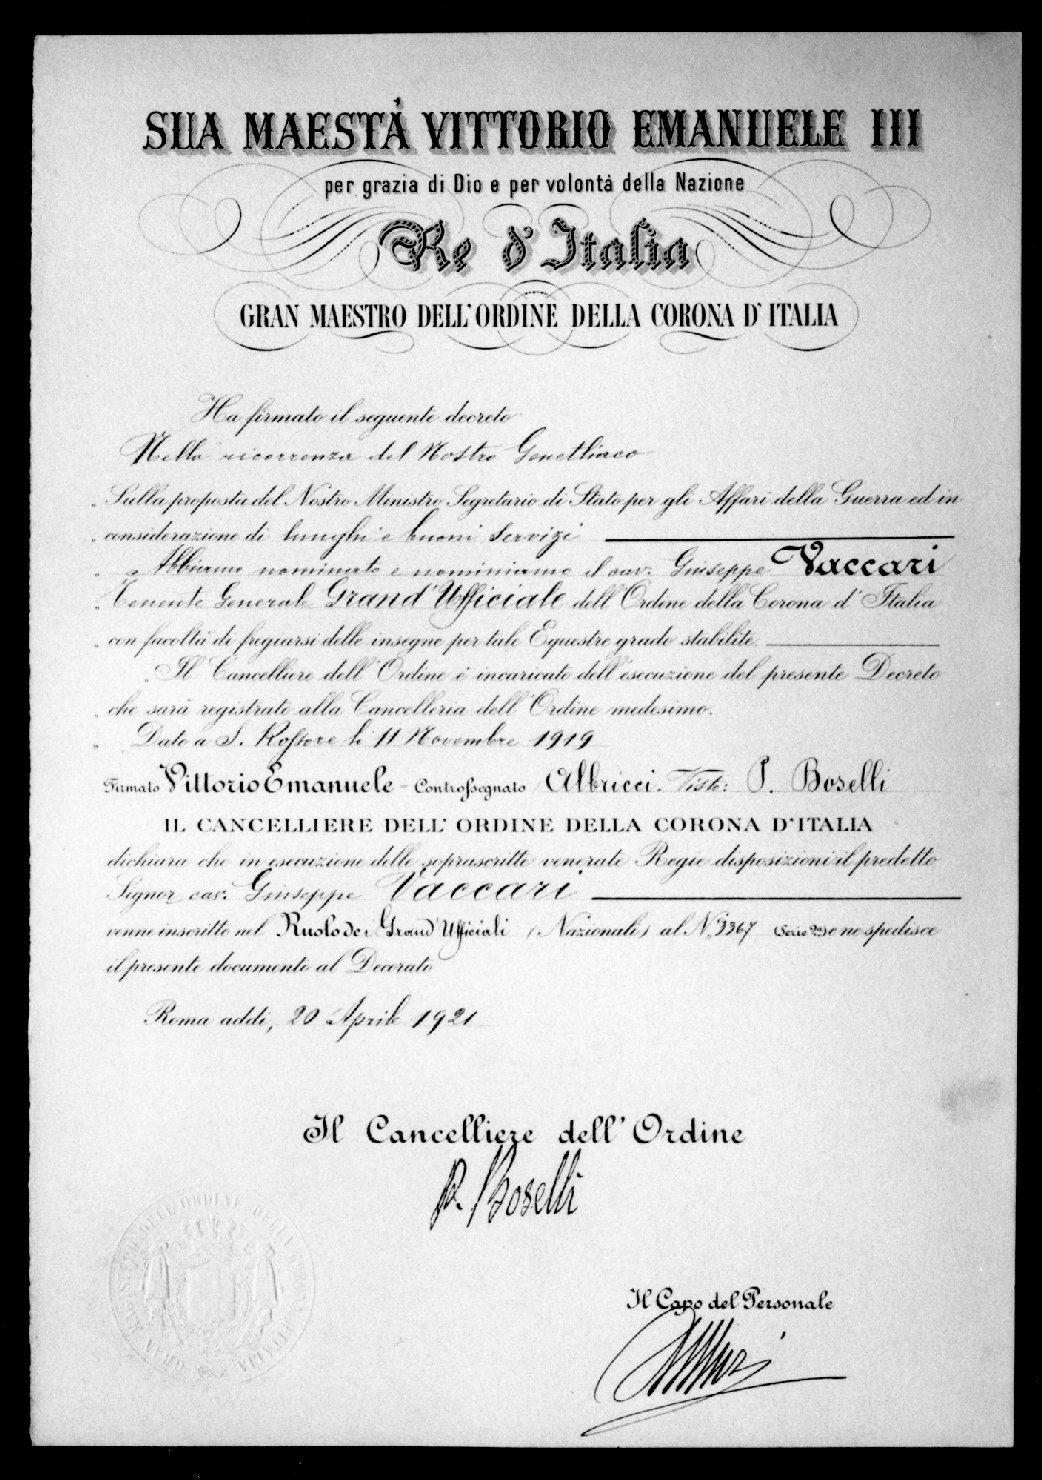 SUA MAESTÀ VITTORIO EMANUELE III
per grazia di Dio e per volontà della Nazione
Re d'Italia
GRAN MAESTRO DELL'ORDINE DELLA CORONA D'ITALIA
Ha firmato il seguente decreto
Nella ricorrenza del Nostro Genetliaco
Sulla proposta del Nostro Ministro Segretario di Stato per gli Affari della Guerra ed in
considerazione di lunghi e buoni servizi
Abbiamo nominato e nominiamo il cav. Giuseppe Vaccari
Tenente Generale Grand'Ufficiale dell'Ordine della Corona d'Italia
con facoltà di fregiarsi delle insegne per tale Equestre grado stabilite.
Il Cancelliere dell'Ordine è incaricato dell'esecuzione del presente Decreto
che sarà registrato alla Cancelleria dell'Ordine medesimo.
Dato a S. Rossore li 11 Novembre 1919
Firmato Vittorio Emanuele - Controssegnato Albricci. Visto: P. Boselli
IL CANCELLIERE DELL'ORDINE DELLA CORONA D'ITALIA
dichiara che in esecuzione delle soprascritte venerate Regie disposizioni il predetto
Signor cav. Giuseppe Vaccari
venne inscritto nel Ruolo dei Grand'Ufficiali (Nazionali) al N. 3367 (Serie 2a) e ne spedisce
il presente documento al Decorato
Roma addì, 20 Aprile 1921
Il Cancelliere dell'Ordine
P. Boselli
Il Capo del Personale